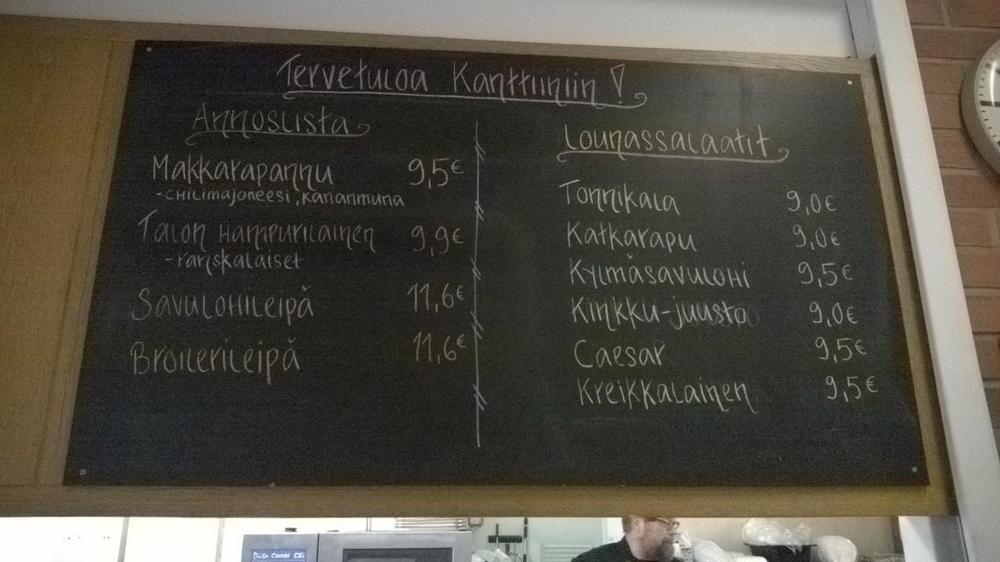 Tervetuloa Kanttiiniin!
Annoslista
Makkarapannu 9,5€
-chilimajoneesi, kananmuna
Talon Hampurilainen 9,9€
-ranskalaiset
Savulohileipä 11,6€
Broilerileipä 11,6€
Lounassalaatit
Tonnikala 9,0€
Katkarapu 9,0€
Kylmäsavulohi 9,5€
Kinkku-juusto 9,0€
Caesar 9,5€
Kreikkalainen 9,5€